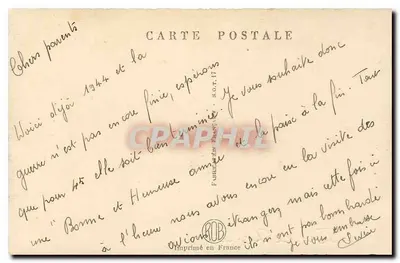 CARTE POSTALE
Chers parents
Voici déjà 1944 et la
guerre n'est pas encore finie, espérons
que pour 45 elle soit bien terminée. Je vous souhaite donc
une "Bonne et Heureuse année de la paix à la fin.
à l'heure nous avons encore eu la visite des
avions étrangers mais cette fois-ci
ils n'ont pas bombardé
Je vous embrasse
Imprimé en France
PCphotos